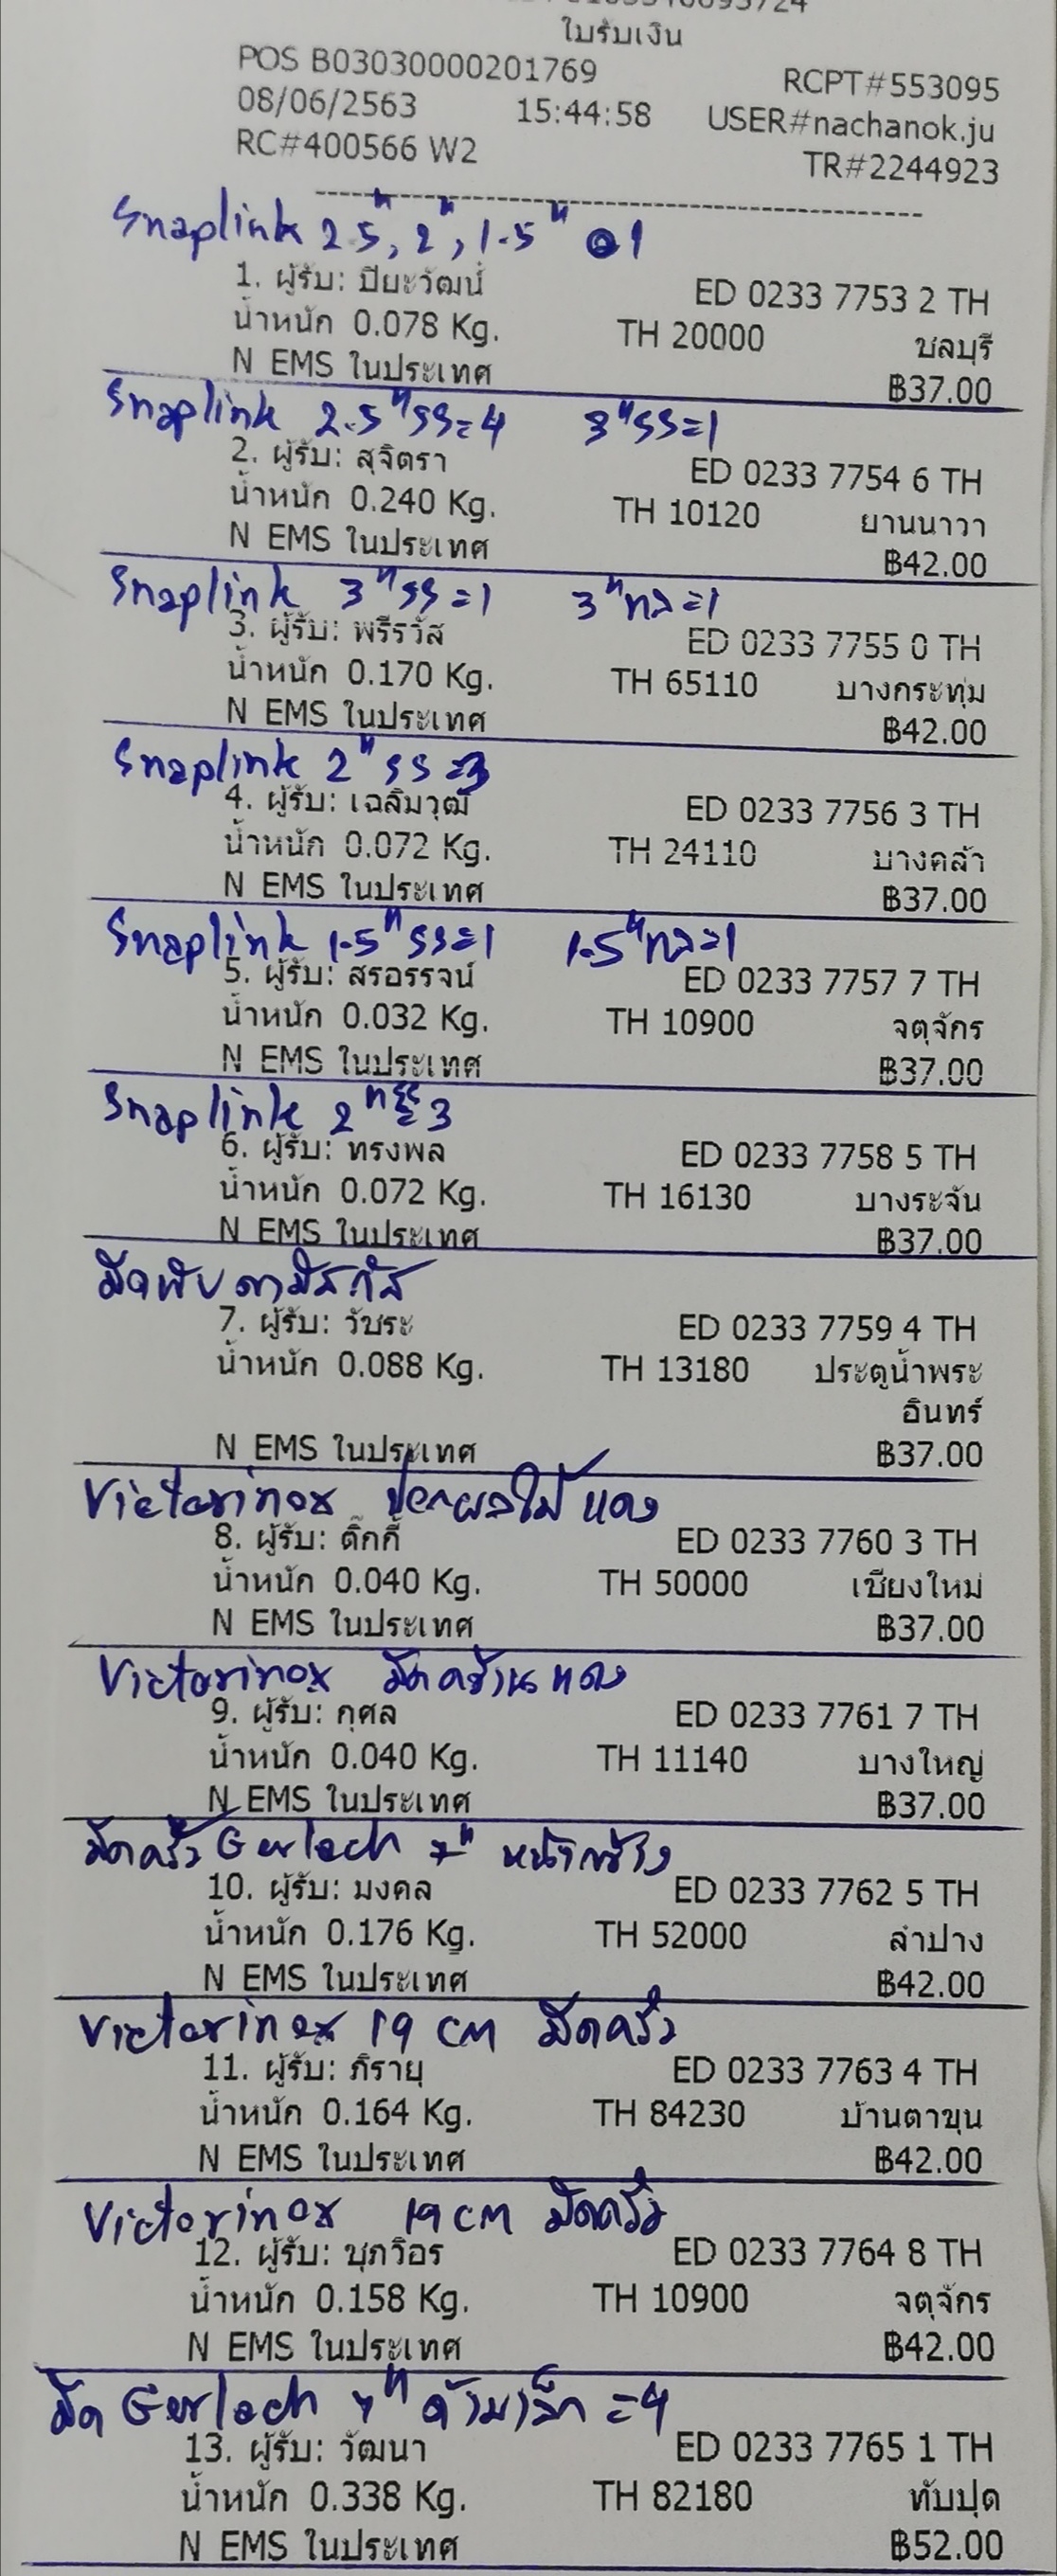 ใบรับเงิน
POS B03030000201769 RCPT#553095
08/06/2563 15:44:58 USER#nachanok.ju
RC#400566 W2 TR#2244923
Snaplink 2.5", 2", 1.5" @1
1. ผู้รับ: ปิยะวัฒน์ ED 0233 7753 2 TH
น้ำหนัก 0.078 Kg. TH 20000 ชลบุรี
N EMS ในประเทศ ฿37.00
Snaplink 2.5"SS=4 3"SS=1
2. ผู้รับ: สุจิตรา ED 0233 7754 6 TH
น้ำหนัก 0.240 Kg. TH 10120 ยานนาวา
N EMS ในประเทศ ฿42.00
Snaplink 3"SS=1 3"ทล=1
3. ผู้รับ: พรีรวัส ED 0233 7755 0 TH
น้ำหนัก 0.170 Kg. TH 65110 บางกระทุ่ม
N EMS ในประเทศ ฿42.00
Snaplink 2"SS=3
4. ผู้รับ: เฉลิมวุฒิ ED 0233 7756 3 TH
น้ำหนัก 0.072 Kg. TH 24110 บางคล้า
N EMS ในประเทศ ฿37.00
Snaplink 1.5"SS=1 1.5"ทล=1
5. ผู้รับ: สรอรรจน์ ED 0233 7757 7 TH
น้ำหนัก 0.032 Kg. TH 10900 จตุจักร
N EMS ในประเทศ ฿37.00
Snaplink 2"SS=3
6. ผู้รับ: ทรงพล ED 0233 7758 5 TH
น้ำหนัก 0.072 Kg. TH 16130 บางระจัน
N EMS ในประเทศ ฿37.00
มีดพับดามัสกัส
7. ผู้รับ: วัชระ ED 0233 7759 4 TH
น้ำหนัก 0.088 Kg. TH 13180 ประตูน้ำพระ
อินทร์
N EMS ในประเทศ ฿37.00
Victorinox ปอกผลไม้ แดง
8. ผู้รับ: ติ๊กกี้ ED 0233 7760 3 TH
น้ำหนัก 0.040 Kg. TH 50000 เชียงใหม่
N EMS ในประเทศ ฿37.00
Victorinox แดง
9. ผู้รับ: กุศล ED 0233 7761 7 TH
น้ำหนัก 0.040 Kg. TH 11140 บางใหญ่
N EMS ในประเทศ ฿37.00
มีดครัว Gerlach 7" หน้ากว้าง
10. ผู้รับ: มงคล ED 0233 7762 5 TH
น้ำหนัก 0.176 Kg. TH 52000 ลำปาง
N EMS ในประเทศ ฿42.00
Victorinox 19 cm มีดครัว
11. ผู้รับ: ภิรายุ ED 0233 7763 4 TH
น้ำหนัก 0.164 Kg. TH 84230 บ้านตาขุน
N EMS ในประเทศ ฿42.00
Victorinox 19 cm มีดครัว
12. ผู้รับ: ชุภวิอร ED 0233 7764 8 TH
น้ำหนัก 0.158 Kg. TH 10900 จตุจักร
N EMS ในประเทศ ฿42.00
มีด Gerlach =4
13. ผู้รับ: วัฒนา ED 0233 7765 1 TH
น้ำหนัก 0.338 Kg. TH 82180 ทับปุด
N EMS ในประเทศ ฿52.00